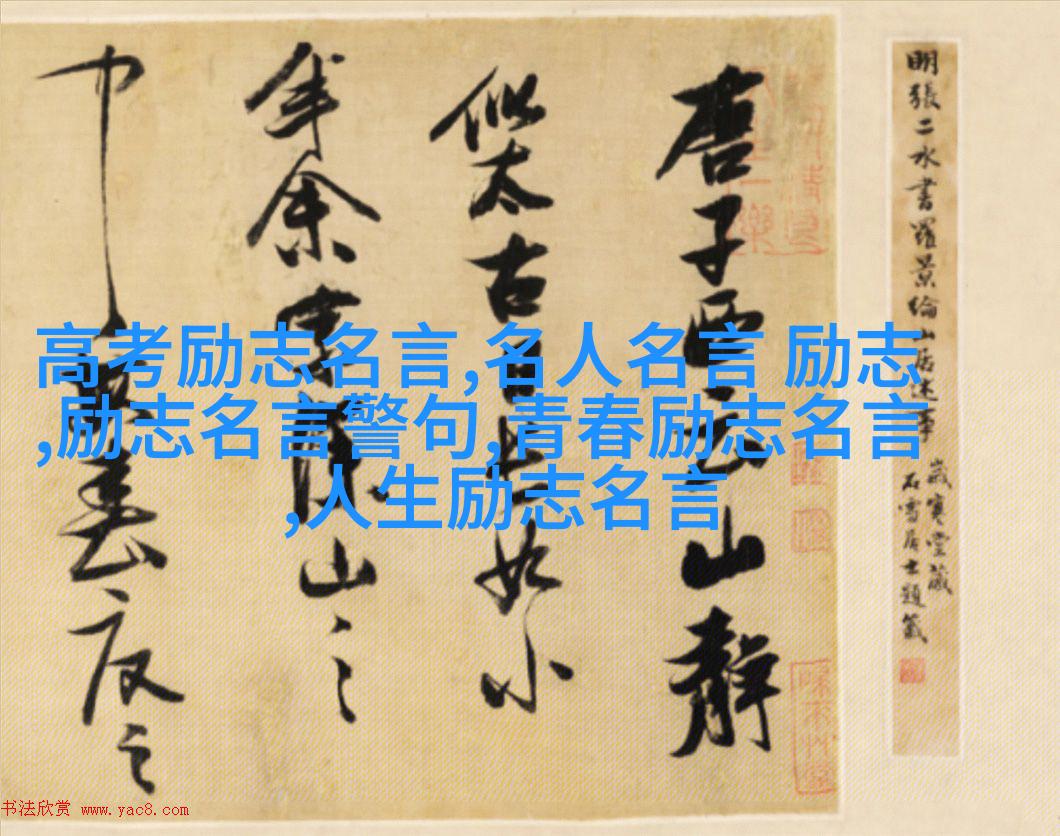 明張二水書羅景綸山居述事
歲寒堂藏
石雪居士題籤
唐子西云山靜
似太古日長如小
年余家深山之
中每春夏之
高考励志名言,名人名言 励志
,励志名言警句,青春励志名言
,人生励志名言
书法欣赏 www.yac8.com